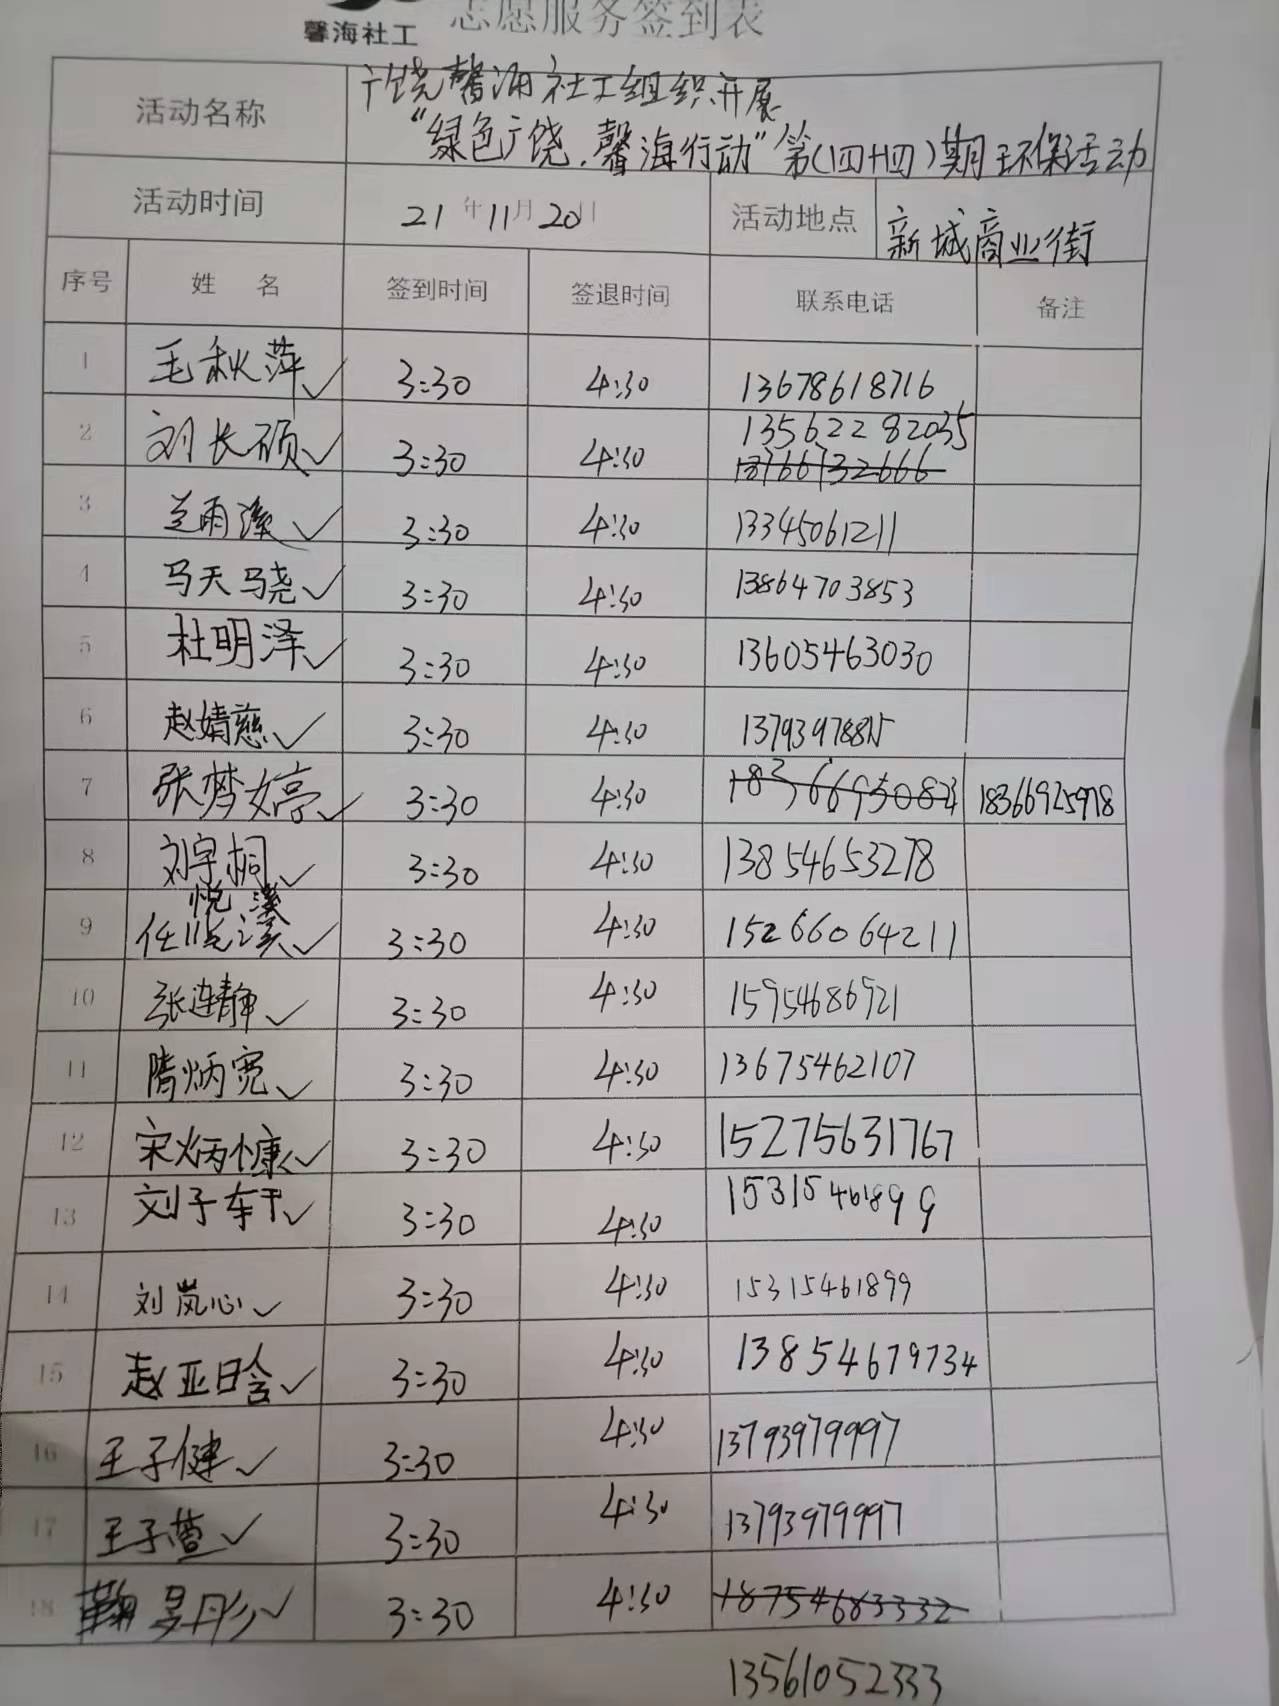 馨海社工 志愿服务签到表
活动名称 广饶馨海社工组织开展
"绿色广饶.馨海行动"第(四十四)期环保活动
活动时间 21年11月20日 活动地点 新城商业街
序号 姓 名 签到时间 签退时间 联系电话 备注
1 毛秋萍✓ 3:30 4:30 13678618716
2 刘长硕✓ 3:30 4:30 13562282035
3 兰雨溪✓ 3:30 4:30 13345061211
4 马天骁✓ 3:30 4:30 13864703853
5 杜明泽✓ 3:30 4:30 13605463030
6 赵婧慈✓ 3:30 4:30
7 张梦婷✓ 3:30 4:30 18366950823 18366925918
8 刘宇桐✓ 3:30 4:30 13854653278
悦溪
9 任悦溪✓ 3:30 4:30 15266064211
10 张连静✓ 3:30 4:30 15954686921
11 隋炳宽✓ 3:30 4:30 13675462107
12 宋炳慷✓ 3:30 4:30 15275631767
13 刘子轩✓ 3:30 4:30 15315461899
14 刘岚心✓ 3:30 4:30 15315461899
15 赵亚晗✓ 3:30 4:30 13854679734
16 王子健✓ 3:30 4:30 13793979997
17 王子萱✓ 3:30 4:30 13793979997
18 鞠昱彤✓ 3:30 4:30 18754683332
13561052333